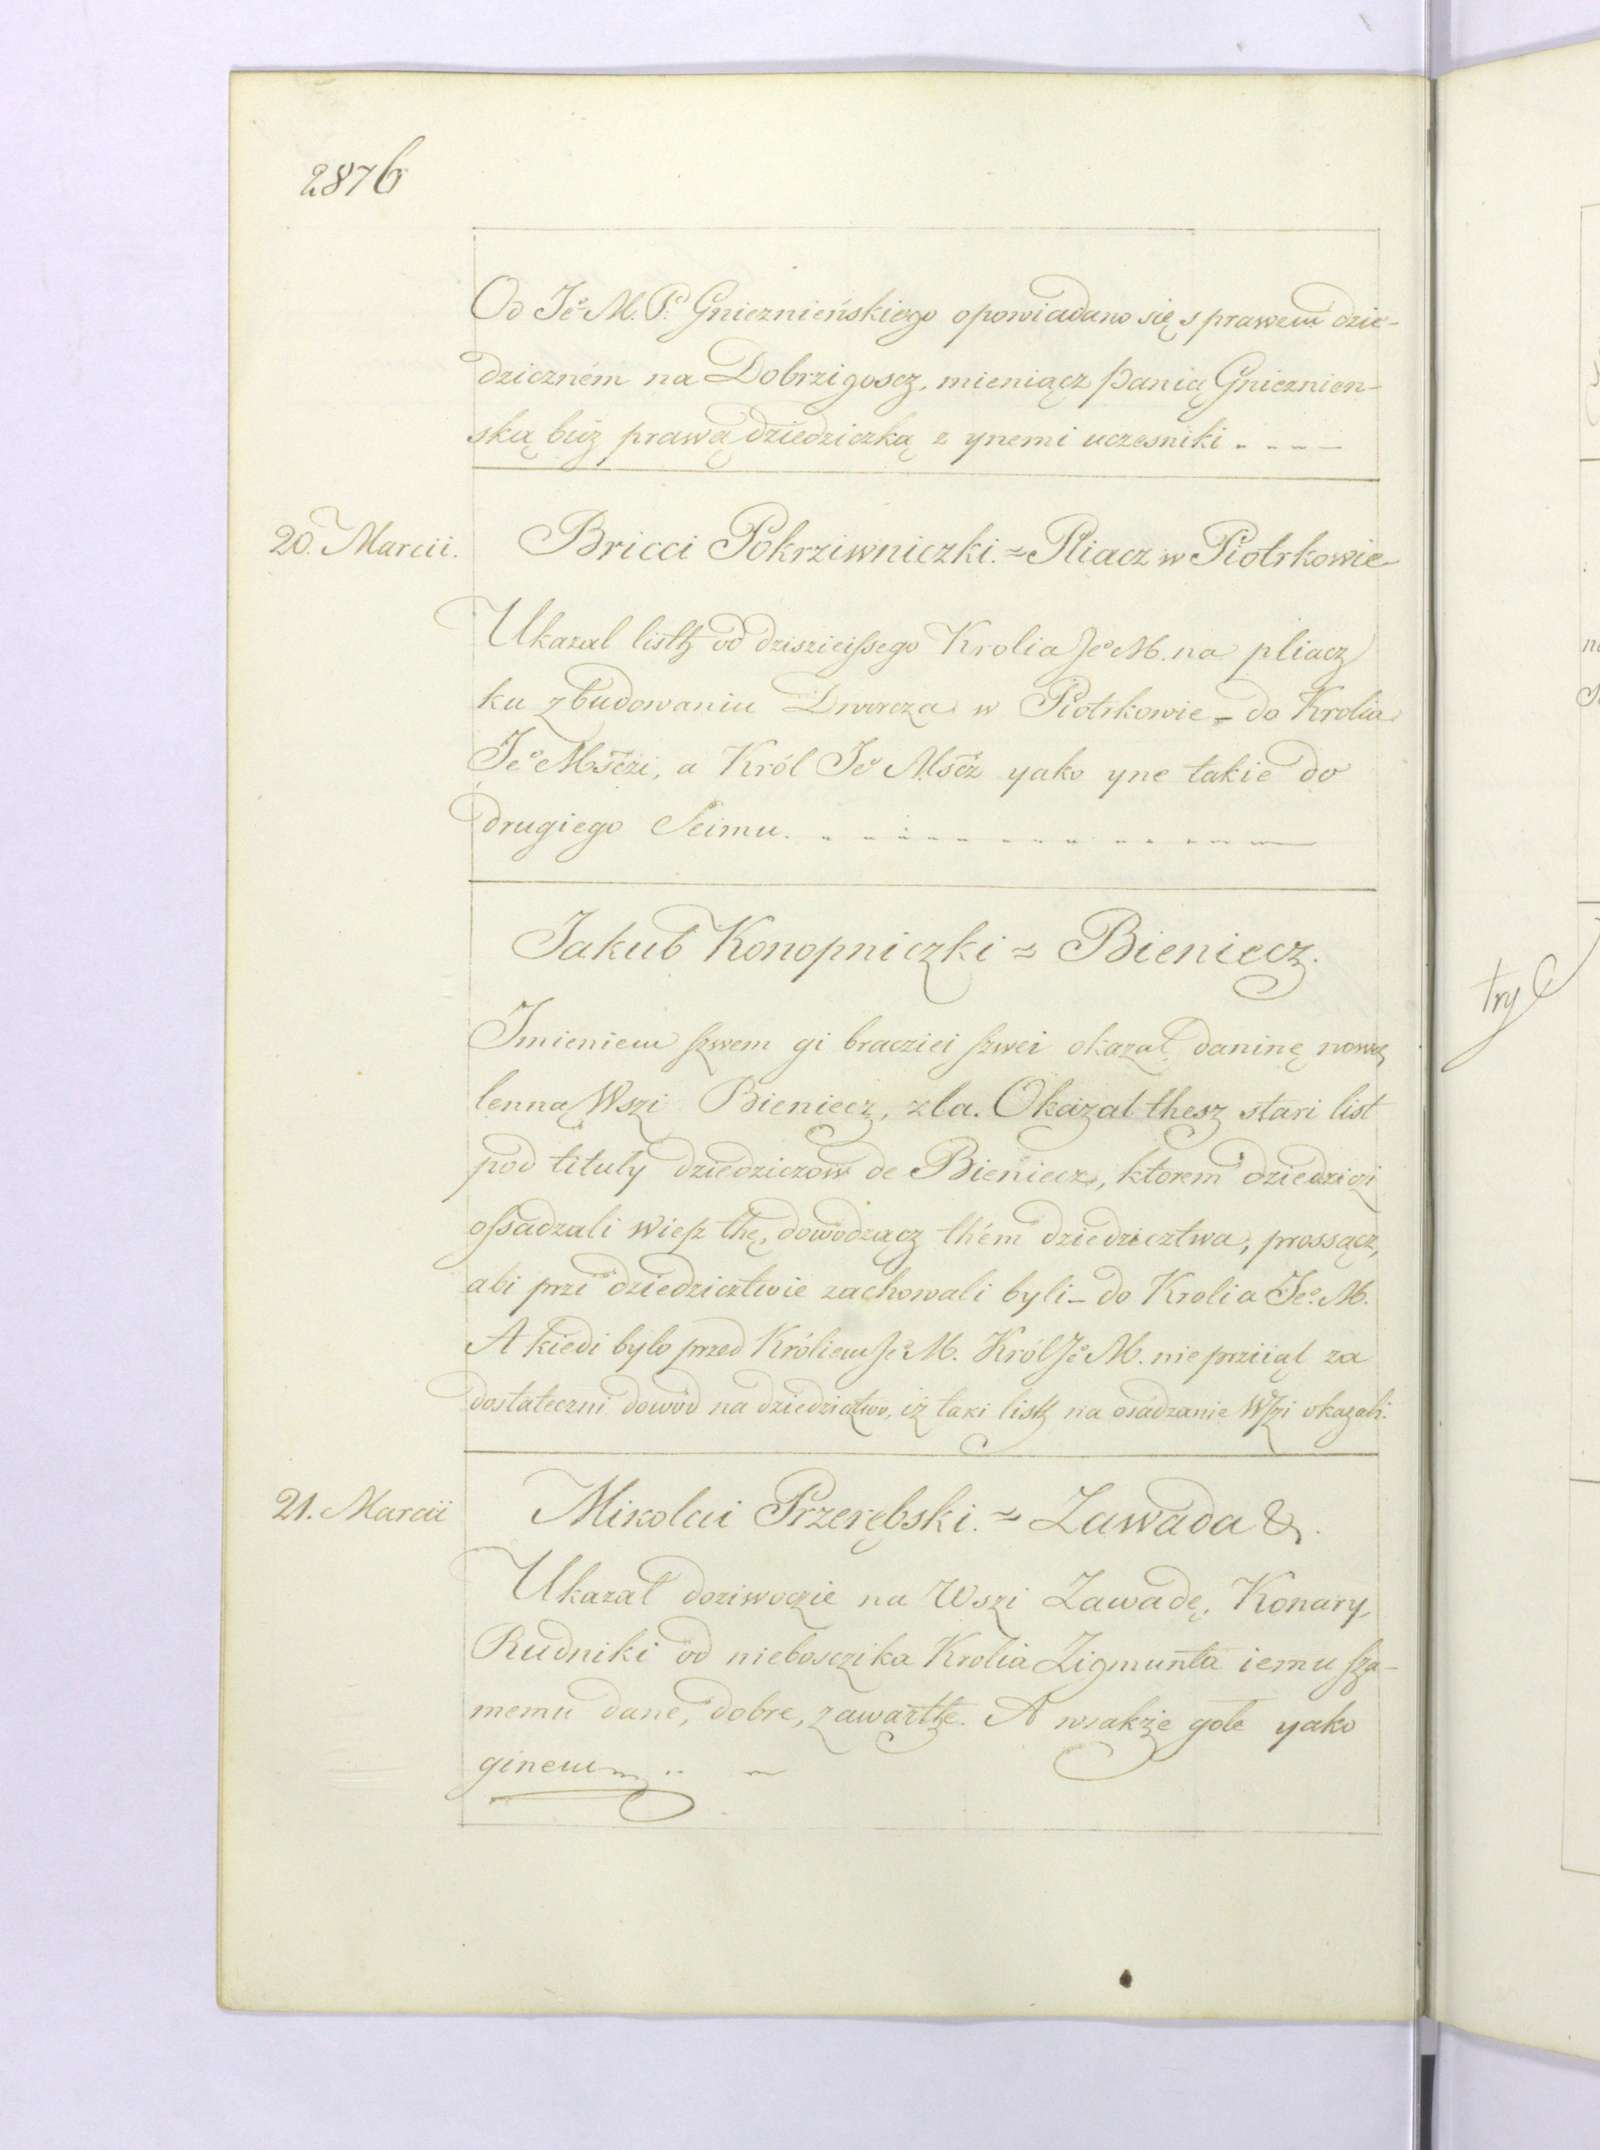 2876
Od Je° M. P. Gnieznieńskiego opowiadano się s prawem dzie-
dziczném na Dobrzigoscz, mieniącz panią Gnieznien-
ską buź prawą dziedziczką z ynemi uczesniki . - - -
20. Marcii.
Bricci Pokrziwniczki. ≈ Pliacz w Piotrkowie
Ukazal listh od dziszieissego Krolia Je° M. na pliacz
ku zbudowaniu Dworcza w Piotrkowie - do Krolia
Je° Msczi, a Król Je° Mscz yako yne takie do
drugiego Seimu.
Jakub Konopniczki ≈ Bieniecz.
Imieniem szwem gi bracziei szwei okazał daninę nową
lenną Wszi Bieniecz, zla. Okazal thesz stari list
pod tituly dziedziczow de Bieniecz, ktorem dziedziczi
ossadzali wiesz thę, dowodzącz thém dziedzicztwa, prossącz,
abi przi dziedzicztwie zachowali byli - do Krolia Je°. M.
A kiedi było przed Króliem Je° M. Król Je° M. nie prziiął za
dostateczni dowód na dziedzictwo, iż taki listh na osádzanie Wszi okazali.
21. Marcii
Mikolai Przerębski. ≈ Zawada &.
Ukazał doziwoczie na Wszi Zawadę, Konary,
Rudniki od nieboszczika Krolia Zigmunta iemu sza-
memu dane, dobre, zawarthe. A wsakże gole yako
ginem
try